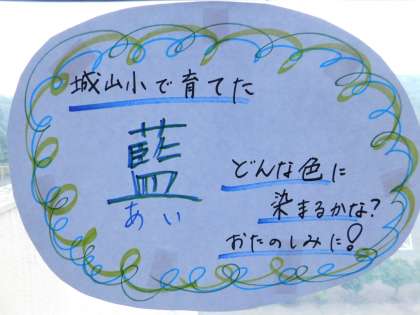 城山小で育てた
藍
あい
どんな色に
染まるかな?
おたのしみに!